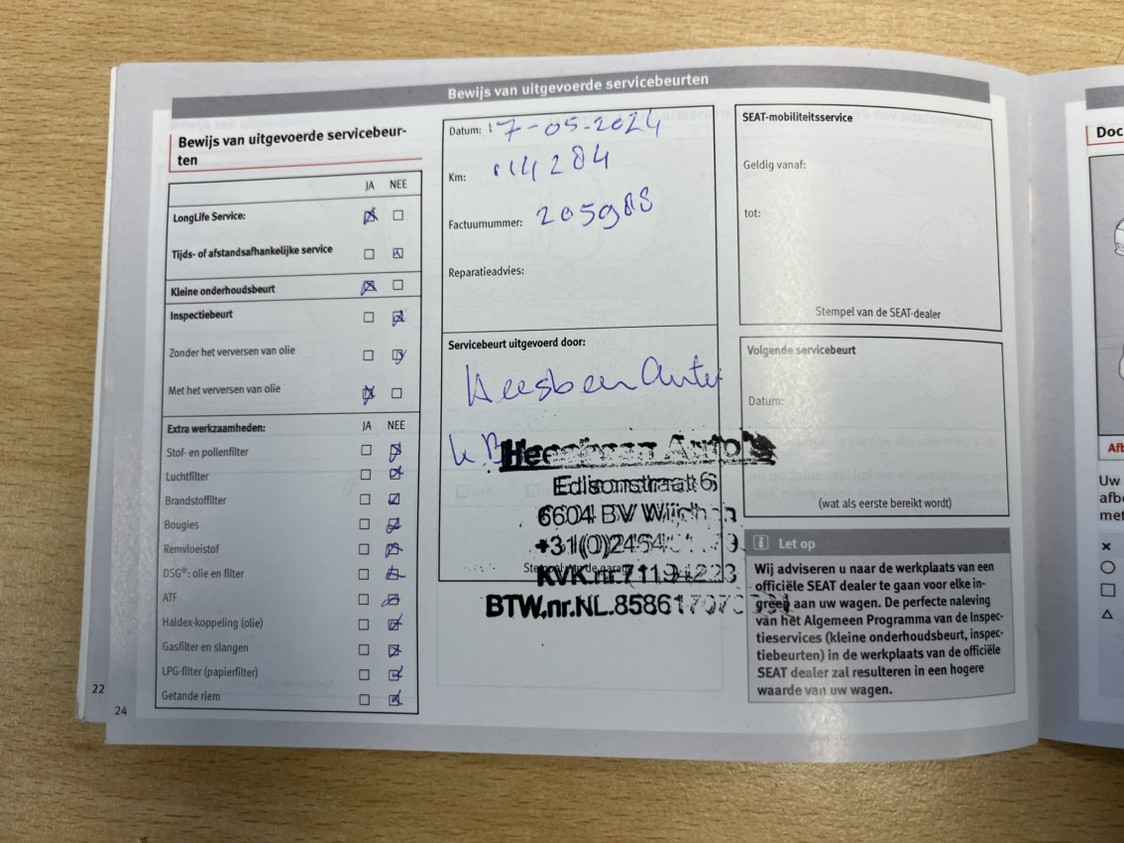 Bewijs van uitgevoerde servicebeurten
Bewijs van uitgevoerde servicebeur-
ten
JA NEE
LongLife Service:
Tijds- of afstandsafhankelijke service
Kleine onderhoudsbeurt
Inspectiebeurt
Zonder het verversen van olie
Met het verversen van olie
Extra werkzaamheden: JA NEE
Stof- en pollenfilter
Luchtfilter
Brandstoffilter
Bougies
Remvloeistof
DSG®: olie en filter
ATF
Haldex-koppeling (olie)
Gasfilter en slangen
LPG-filter (papierfilter)
Getande riem
22
24
Datum: 17-05-2024
Km: 114284
Factuurnummer: 205988
Reparatieadvies:
Servicebeurt uitgevoerd door:
Heesbeen Auto's
Edisonstraat 6
6604 BV Wijchen
KVK.nr.71194223
SEAT-mobiliteitsservice
Geldig vanaf:
tot:
Stempel van de SEAT-dealer
Volgende servicebeurt
Datum:
(wat als eerste bereikt wordt)
Let op
Wij adviseren u naar de werkplaats van een
officiële SEAT dealer te gaan voor elke in-
greep aan uw wagen. De perfecte naleving
van het Algemeen Programma van de Inspec-
tieservices (kleine onderhoudsbeurt, inspec-
tiebeurten) in de werkplaats van de officiële
SEAT dealer zal resulteren in een hogere
waarde van uw wagen.
Doc
Uw
afbe
met